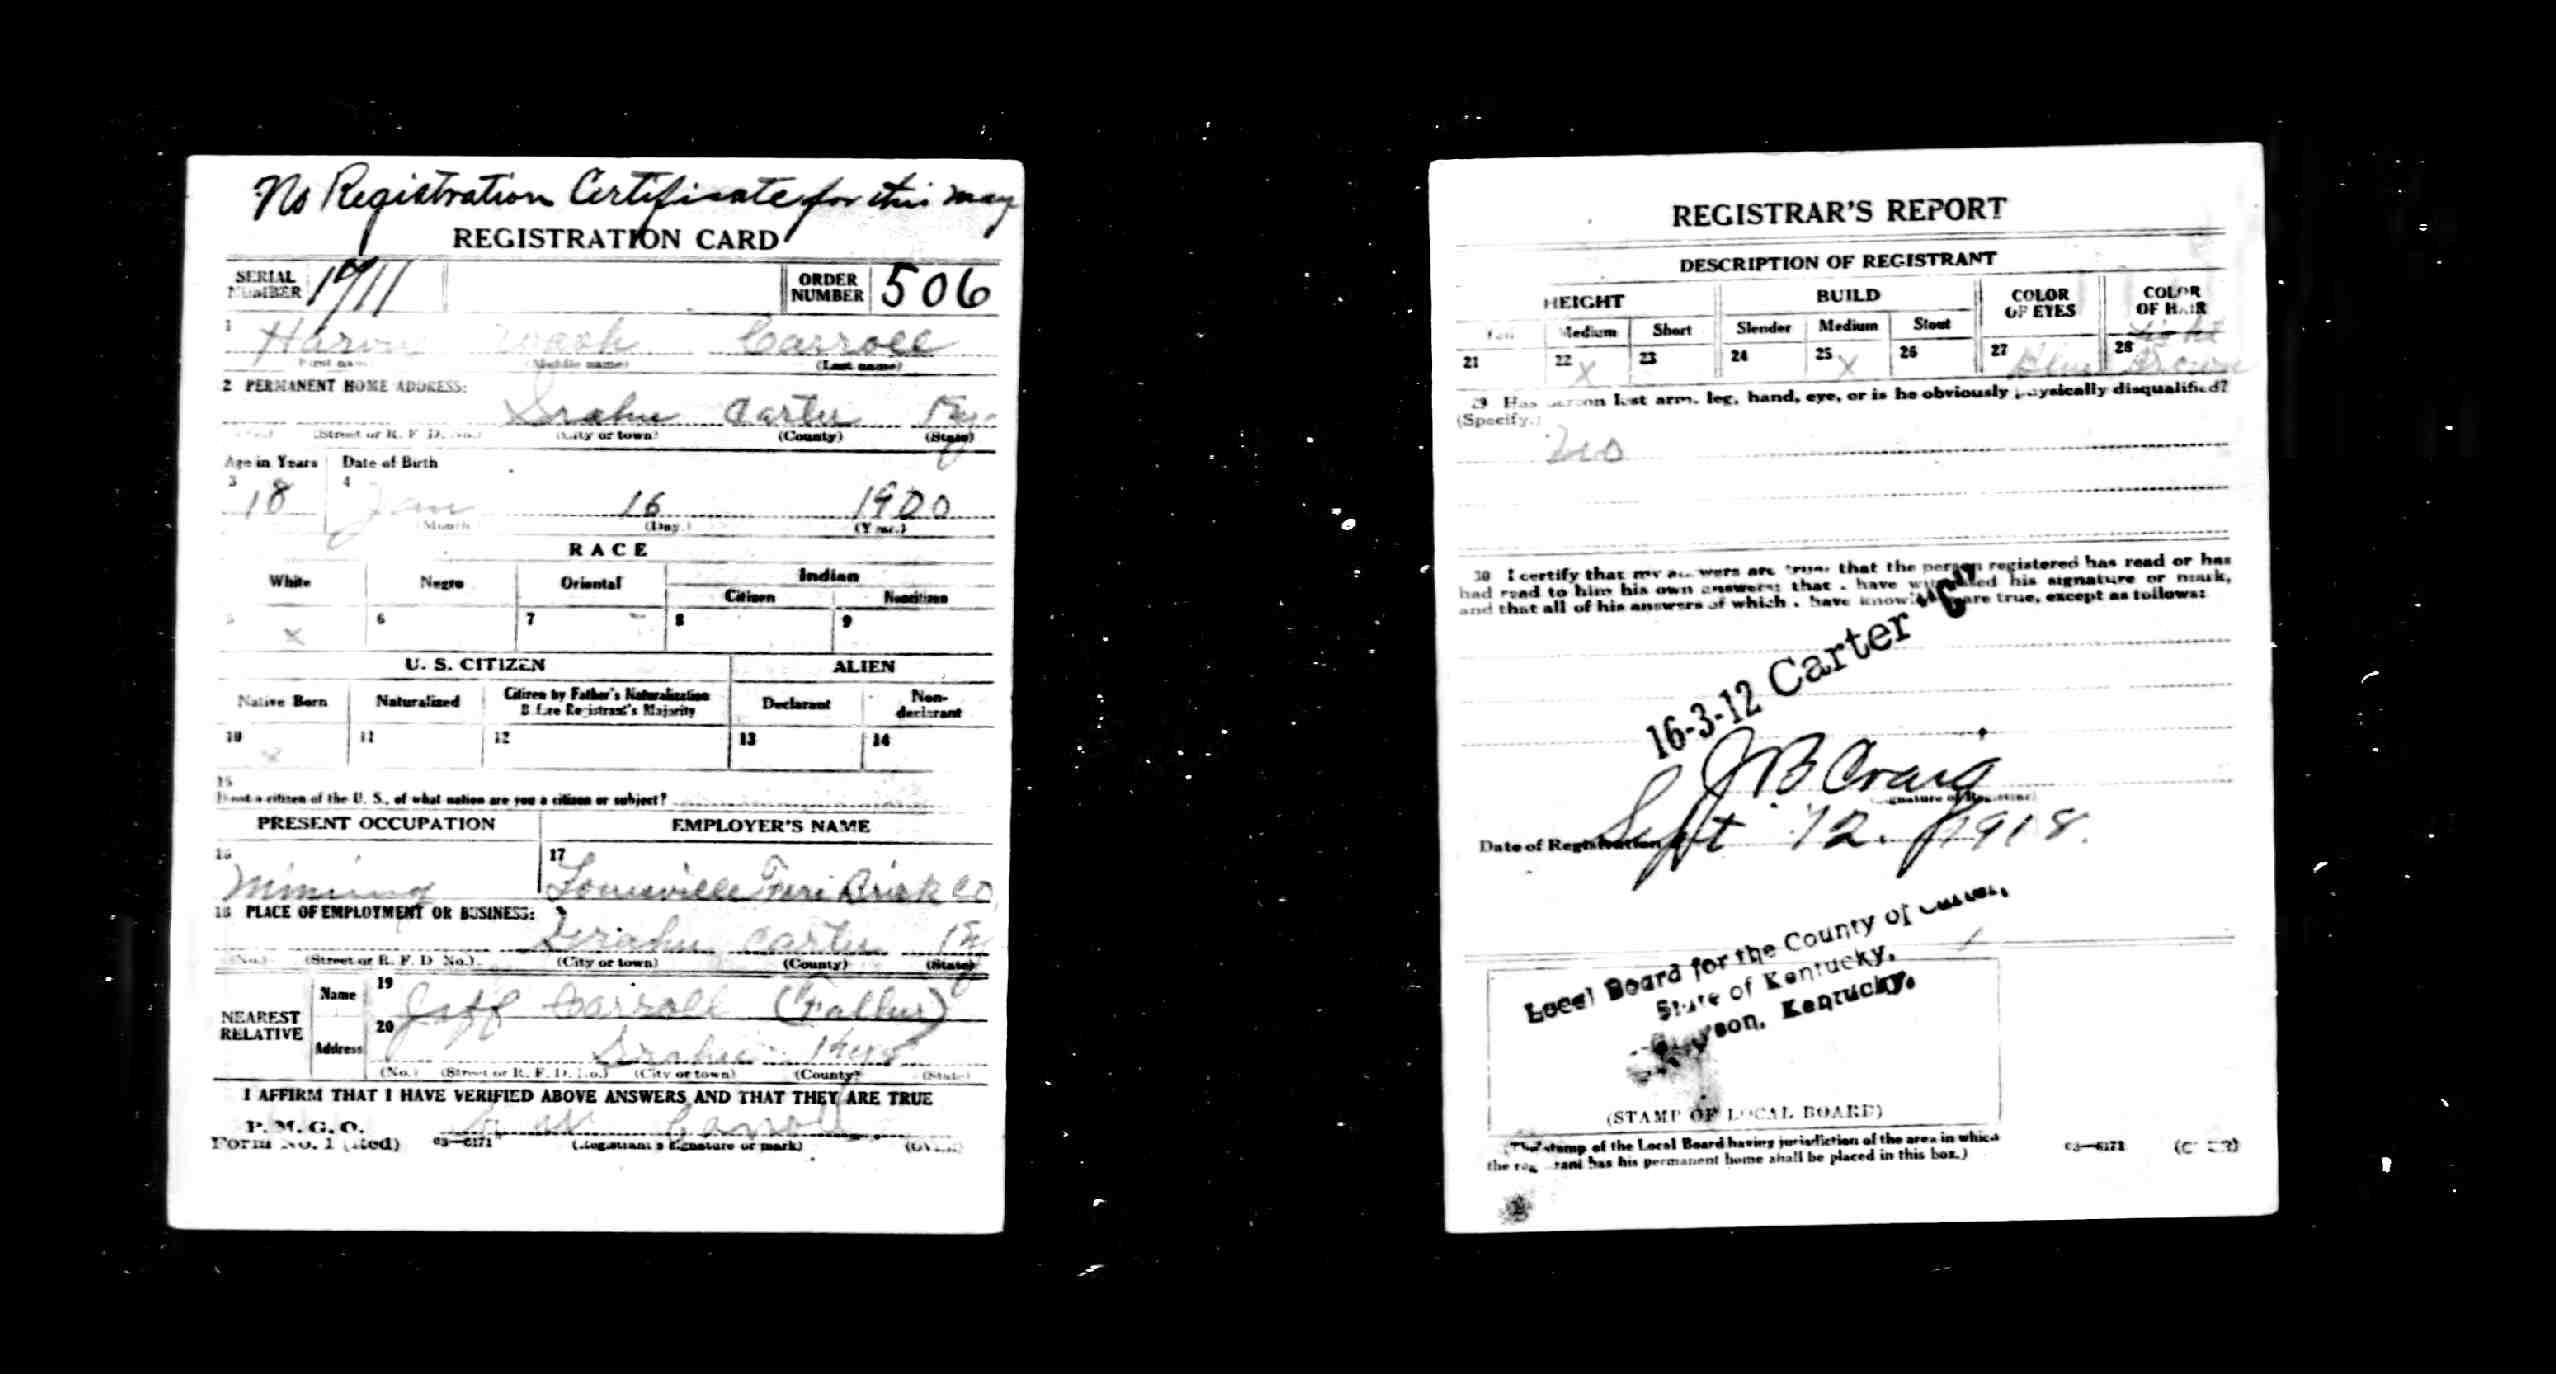 No Registration Certificate for this man
REGISTRATION CARD
SERIAL NUMBER
ORDER NUMBER 506
1 Carroll
First name (Middle name) (Last name)
2 PERMANENT HOME ADDRESS:
Carter Ky.
(No.) (Street or R. F. D. No.) (City or town) (County) (State)
Age in Years Date of Birth
3 18 4 Jan 16 1900
(Month.) (Day.) (Year.)
RACE
White Negro Oriental Indian
Citizen Noncitizen
5 X 6 7 8 9
U. S. CITIZEN ALIEN
Native Born Naturalized Citizen by Father's Naturalization Before Registrant's Majority Declarant Non-declarant
10 x 11 12 13 14
15
If not a citizen of the U. S., of what nation are you a citizen or subject?
PRESENT OCCUPATION EMPLOYER'S NAME
16 Mining 17 Louisville Fire Brick Co.
18 PLACE OF EMPLOYMENT OR BUSINESS:
Carter Ky
(No.) (Street or R. F. D. No.) (City or town) (County) (State)
NEAREST RELATIVE
Name 19 Jeff Carroll (Father)
Address 20
(No.) (Street or R. F. D. No.) (City or town) (County) (State)
I AFFIRM THAT I HAVE VERIFIED ABOVE ANSWERS AND THAT THEY ARE TRUE
P. M. G. O.
Form No. 1 (Red) 03—6171 Carroll
(Registrant's signature or mark) (OVER)
REGISTRAR'S REPORT
DESCRIPTION OF REGISTRANT
HEIGHT BUILD COLOR OF EYES COLOR OF HAIR
Tall Medium Short Slender Medium Stout
21 22 X 23 24 25 X 26 27 Blue 28 Light Brown
29 Has person lost arm, leg, hand, eye, or is he obviously physically disqualified?
(Specify.)
No
30 I certify that my answers are true; that the person registered has read or has
had read to him his own answers; that I have witnessed his signature or mark,
and that all of his answers of which I have knowledge are true, except as follows:
16-3-12 Carter "C"
J B Craig
(Signature of Registrar)
Date of Registration Sept 12. 1918.
Local Board for the County of Carter,
State of Kentucky,
Grayson, Kentucky.
(STAMP OF LOCAL BOARD)
(The stamp of the Local Board having jurisdiction of the area in which
the registrant has his permanent home shall be placed in this box.)
03—6171 (OVER)